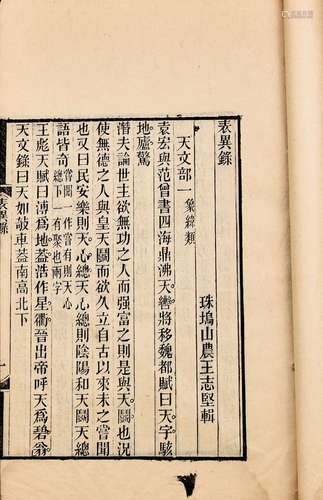 表異錄
珠塢山農王志堅輯
天文部一 象緯類
袁宏與范曾書四海鼎沸天轡將移魏都賦曰天宇駭
地廬驚
潛夫論世主欲無功之人而强富之則是與天鬭也况
使無德之人與皇天鬭而欲久立自古以來未之嘗聞
也又曰民安樂則天心總天心總則陰陽和天鬭天總
語皆奇 嘗聞一作嘗有則天心
總下一有聚也兩字
王彪天賦曰溥爲地蓋浩作星衢晉出帝呼天爲碧翁
天文錄曰天如敧車蓋南高北下
表異錄